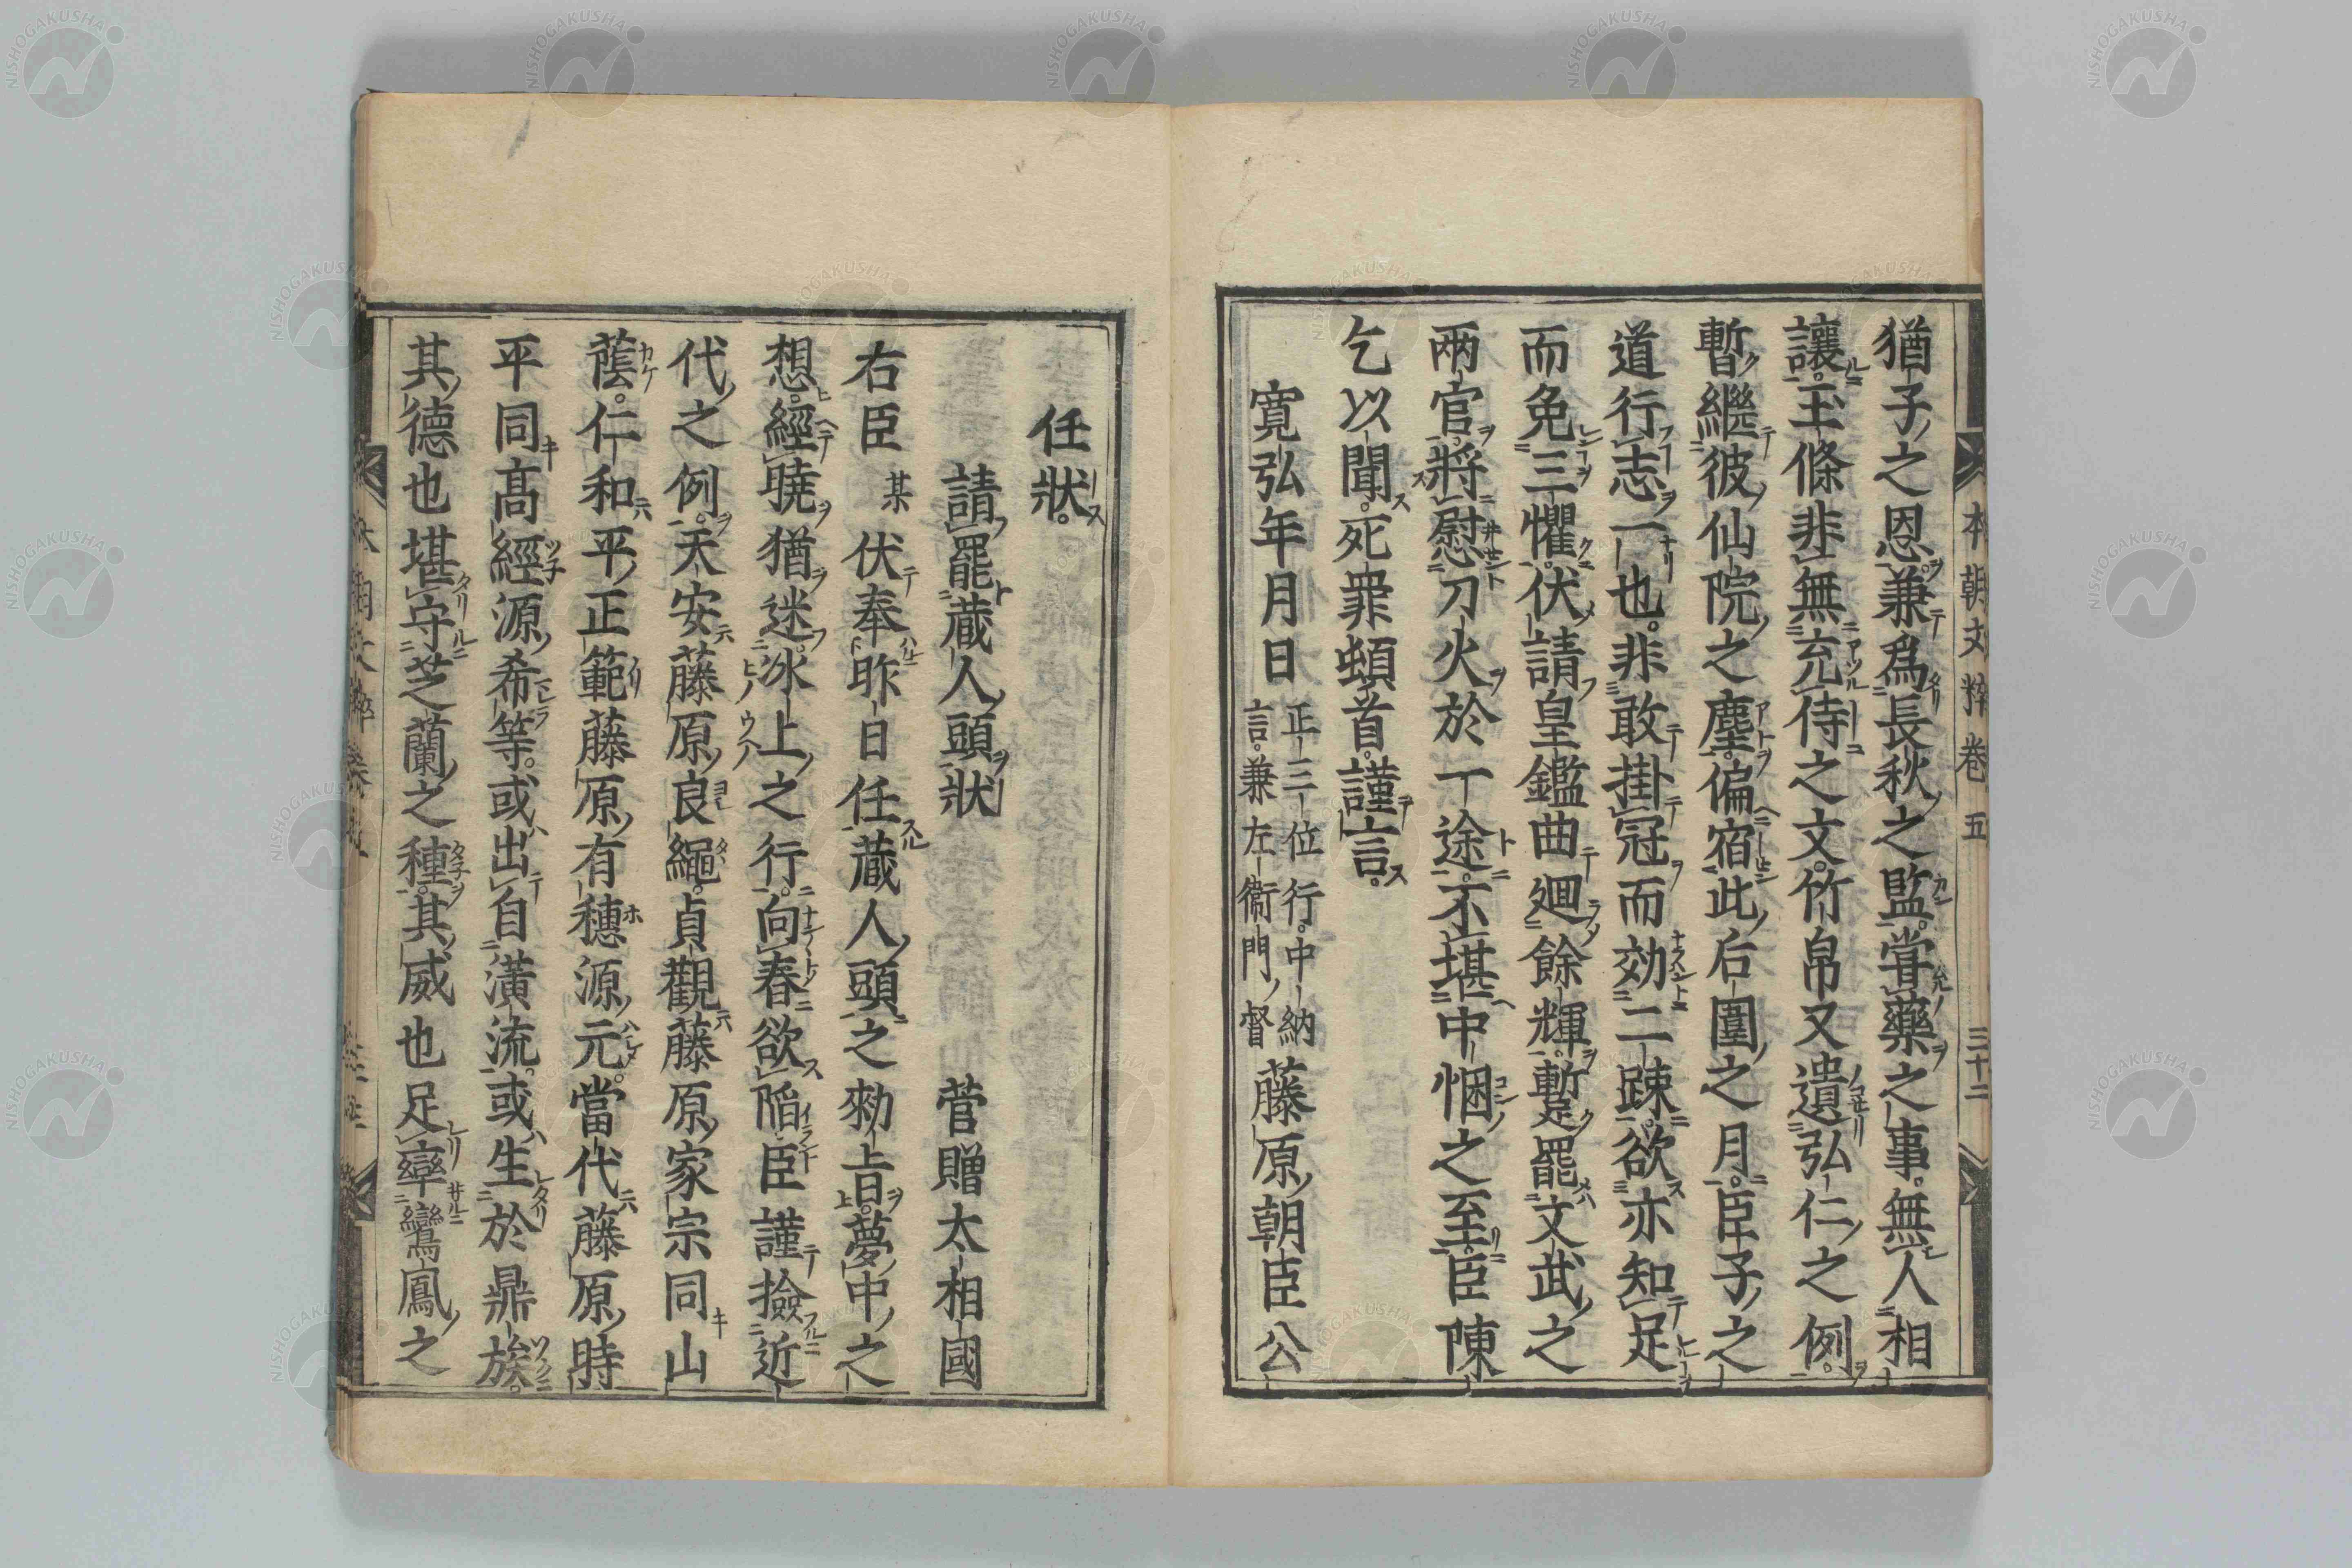 猶子之恩兼爲長秋之監。甞藥之事。無人相
讓。玉條非無充侍之文。竹帛又遺弘仁之例。
暫繼彼仙院之塵。偏宿此后闈之月。臣子之
道行志一也。非敢掛冠而効二疎。欲亦知足
而免三懼。伏請皇鑑曲廻餘輝。蹔罷文武之
兩官。將慰刀火於一途。不堪中悃之至。臣陳
乞以聞。死罪頓首。謹言。
寛弘年月日 正三位行中納言。兼左衞門督藤原朝臣公
任狀。
請罷蔵人頭狀 菅贈太相國
右臣 某 伏奉昨日任蔵人頭之勑旨。夢中之
想。經曉猶迷。氷上之行。向春欲陷。臣謹撿近
代之例。天安藤原良繩。貞觀藤原家宗同山
蔭。仁和平正範藤原有穗源元。當代藤原時
平同髙經源希等。或出自潢流。或生於鼎族。
其德也堪守芝蘭之種。其威也足率鸞鳳之
本朝文粹卷五 三十二